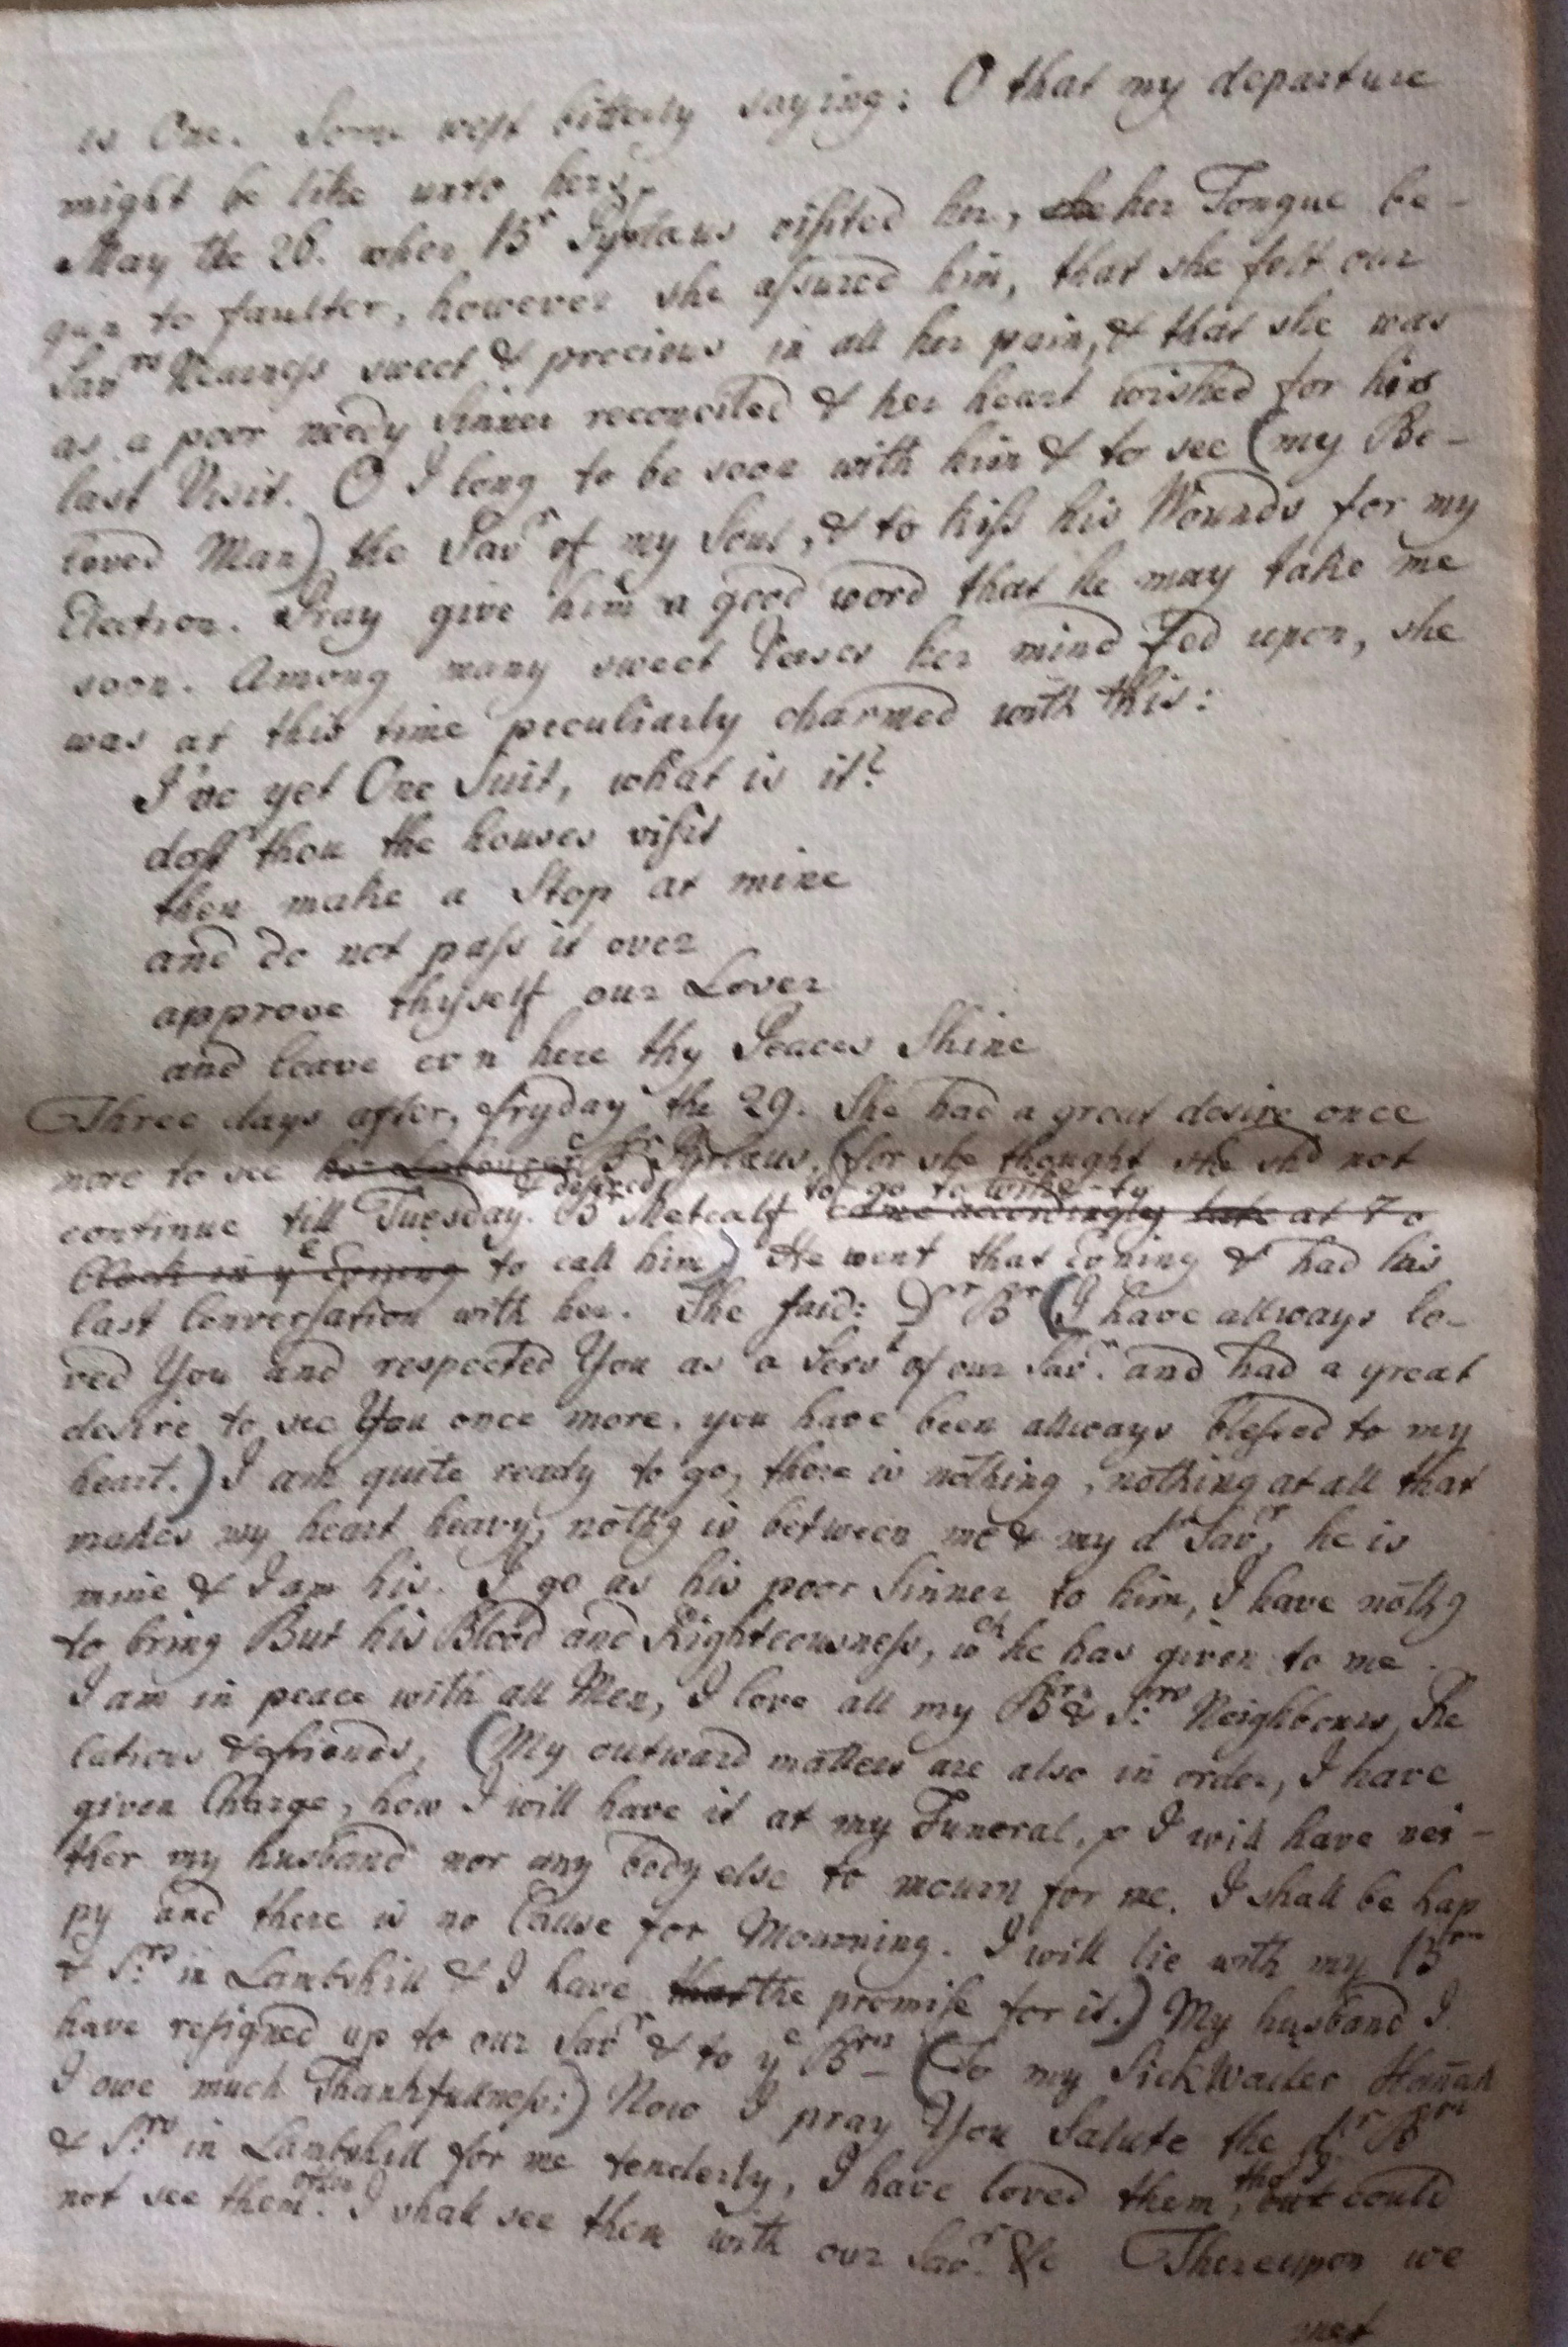 is One. Some wept bitterly saying: O that my departure
might be like unto hers.
May the 26. when Br Syrlaus visited her, she her Tongue be-
gun to faulter, however she assured him, that she felt our
Savrs Nearness sweet & precious in all her pain, & that she was
as a poor needy Sinner reconciled & her heart wished for his
last Visit. O I long to be soon with him & to see (my Be-
loved Man) the Savr of my Soul, & to kiss his Wounds for my
Election. Pray give him a good word that he may take me
soon. Among many sweet Verses her mind Fed upon, she
was at this time peculiarly charmed with this:
I've yet One Suit, what is it?
dost thou the houses visit
then make a Stop at mine
and do not pass it over
approve thyself our Lover
and leave ev'n here thy Peaces Shine
Three days after, fryday the 29. She had a great desire once
more to see her Labourer Br Syrlaus, (for she thought she shd not
& desired to go to
continue till Tuesday. Br Metcalf came accordingly late at 7 o
Clock in ye Evning to call him) He went that Evning & had his
last Conversation with her. She said: Dr Br (I have allways lo-
ved You and respected You as a Servt of our Savr. and had a great
desire to see You once more. you have been allways blessed to my
heart.) I am quite ready to go, there is nothing, nothing at all that
makes my heart heavy, nothg is between me & my dr Savr, he is
mine & I am his. I go as his poor Sinner to him, I have nothg
to bring But his Blood and Righteousness, wch he has given to me.
I am in peace with all Men, I love all my Brn & Srs Neighbours, Re
lations & friends, (My outward matters are also in order, I have
given Charge, how I will have it at my Funeral, p I will have nei-
ther my husband nor any body else to mourn for me. I shall be hap
py and there is no Cause for Mourning. I will lie with my Brn
& Srs in Lambshill & I have that the promise for it.) My husband I
have resigned up to our Savr & to ye Brn - (To my Sick Waiter Hannah
I owe much Thankfullness:) Now I pray You Salute the dr Brn
& Srs in Lambshill for me tenderly, I have loved them, tho' I but could
not see them often. I shall see them with our Savr. &c Thereupon we
met